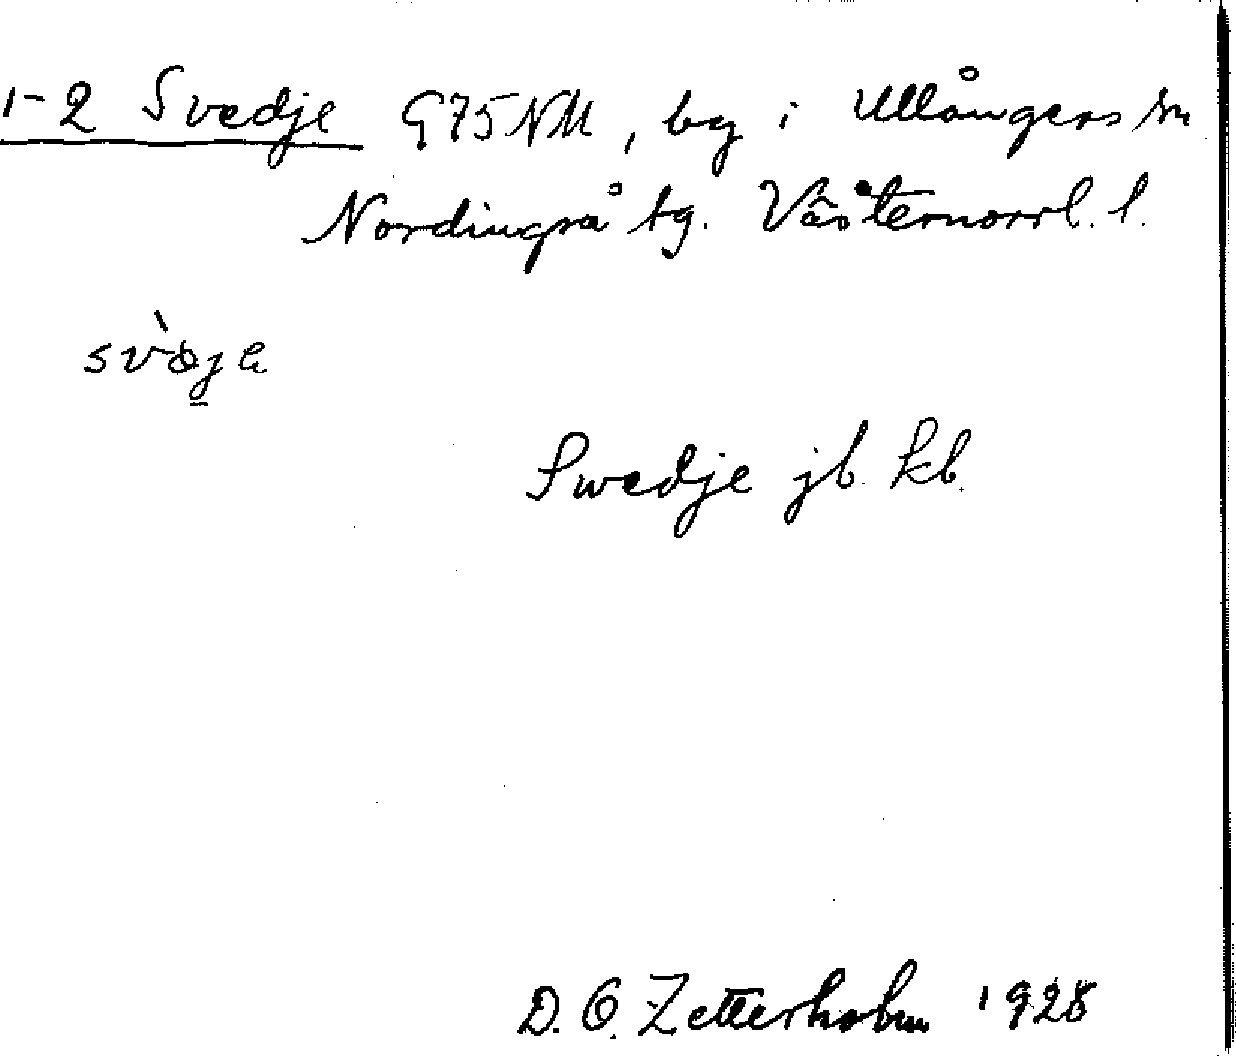 1-2 Svedje G75NM, by i Ullångers sn
Nordingrå tg. Västernorrl. l.
svæ̀ja
Swedje jb. kb.
D. O. Zetterholm 1928